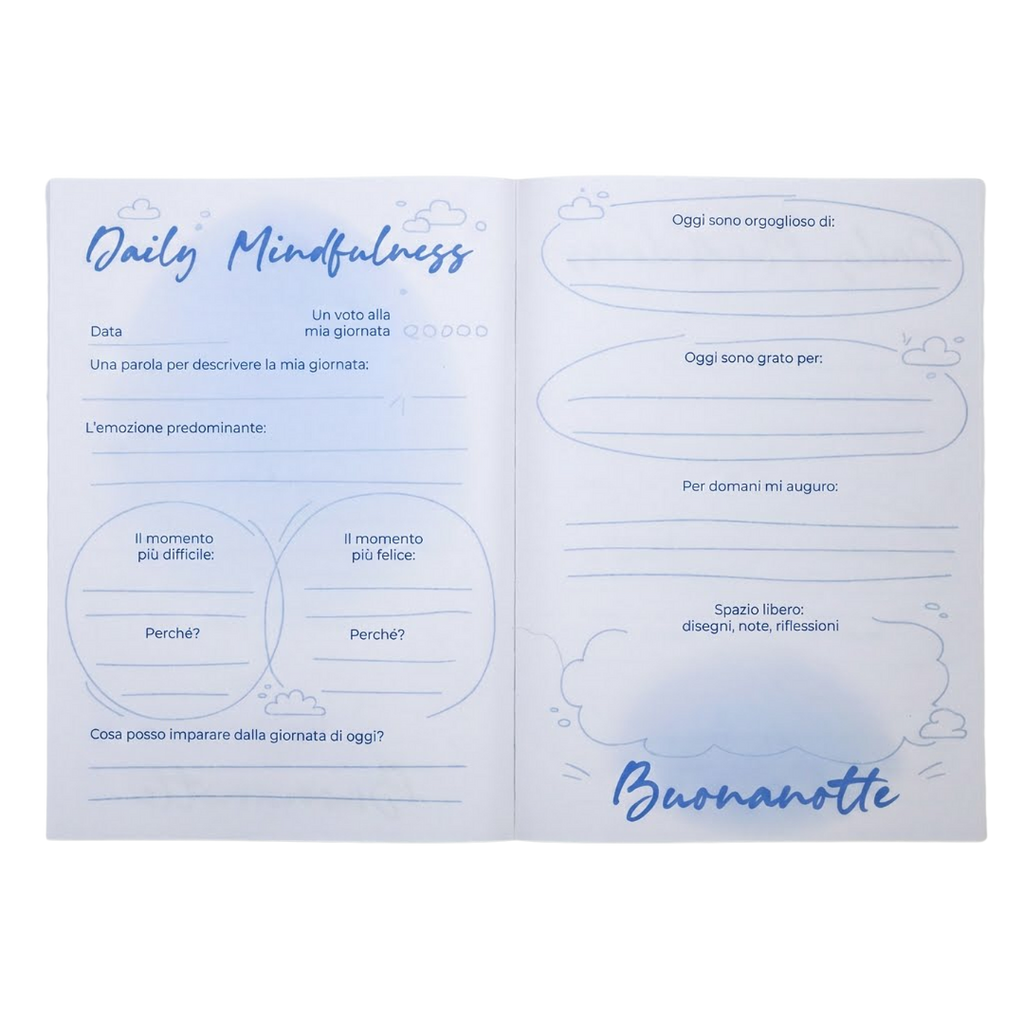 Daily Mindfulness
Data
Un voto alla
mia giornata
Una parola per descrivere la mia giornata:
L'emozione predominante:
Il momento
più difficile:
Perché?
Il momento
più felice:
Perché?
Cosa posso imparare dalla giornata di oggi?
Oggi sono orgoglioso di:
Oggi sono grato per:
Per domani mi auguro:
Spazio libero:
disegni, note, riflessioni
Buonanotte